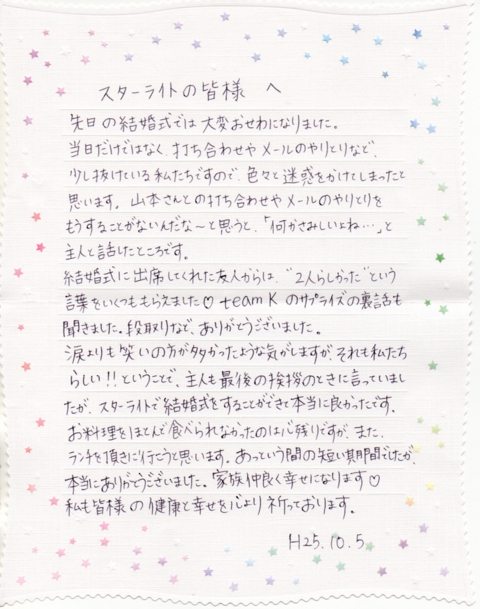 スターライトの皆様 へ
先日の結婚式では大変おせわになりました。
当日だけではなく、打ち合わせやメールのやりとりなど、
少し抜けている私たちですので、色々と迷惑をかけてしまったと
思います。山本さんとの打ち合わせやメールのやりとりを
もうすることがないんだな～と思うと、「何かさみしいよね…」と
主人と話したところです。
結婚式に出席してくれた友人からは、“2人らしかった”という
言葉をいくつももらえました♡ teamKのサプライズの裏話も
聞きました。段取りなど、ありがとうございました。
涙よりも笑いの方が多かったような気がしますが、それも私たち
らしい!!ということで、主人も最後の挨拶のときに言っていまし
たが、スターライトで結婚式をすることができて本当に良かったです。
お料理をほとんど食べられなかったのは心残りですが、また、
ランチを頂きに行こうと思います。あっという間の短い期間でしたが、
本当にありがとうございました。家族仲良く幸せになります♡
私も皆様の健康と幸せを心より祈っております。
H25.10.5